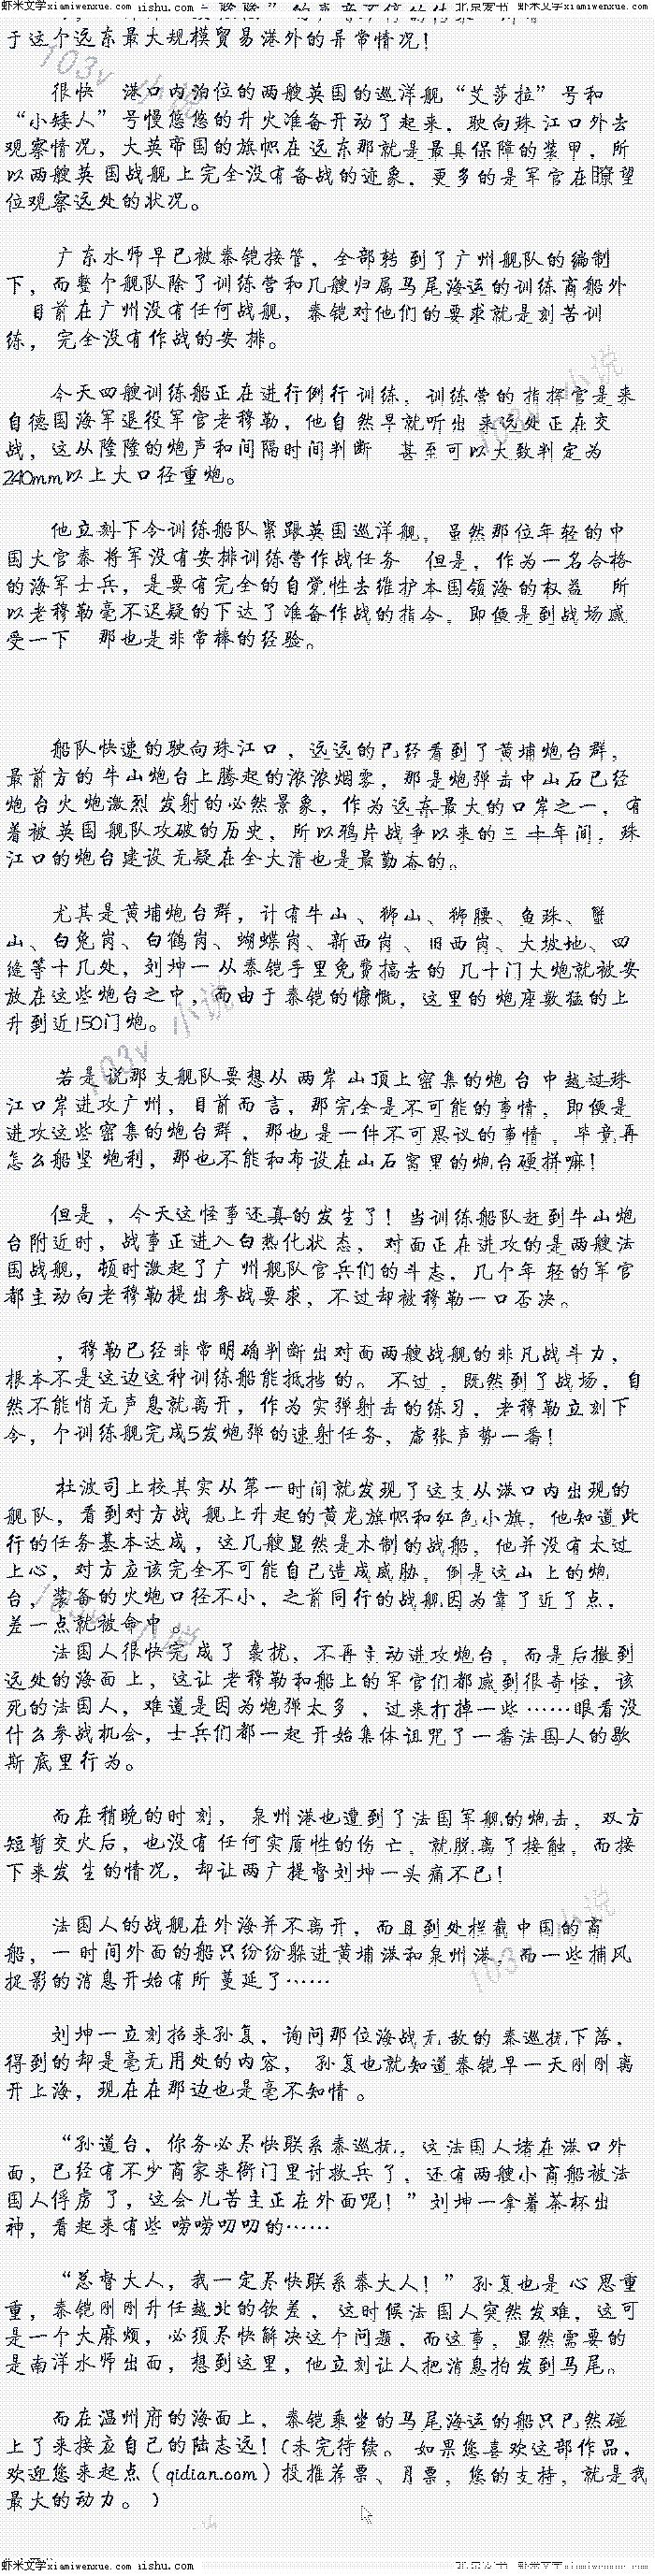 虾米文学xiamiwenxue.com
iishu.com
虾米文学xiamiwenxue.com
于这个远东最大规模贸易港外的异常情况！
很快 港口内泊位的两艘英国的巡洋舰“艾莎拉”号和
“小矮人”号慢悠悠的升火准备开动了起来，驶向珠江口外去
观察情况，大英帝国的旗帜在远东那就是最具保障的装甲，所
以两艘英国战舰上完全没有备战的迹象，更多的是军官在瞭望
位观察远处的状况。
广东水师早已被秦铠接管，全部转到了广州舰队的编制
下，而整个舰队除了训练营和几艘归属马尾海运的训练商船外
目前在广州没有任何战舰，秦铠对他们的要求就是刻苦训
练，完全没有作战的安排。
今天四艘训练船正在进行例行训练，训练营的指挥官是来
自德国海军退役军官老穆勒，他自然早就听出来远处正在交
战，这从隆隆的炮声和间隔时间判断 甚至可以大致判定为
240mm以上大口径重炮。
他立刻下令训练船队紧跟英国巡洋舰，虽然那位年轻的中
国大官秦将军没有安排训练营作战任务 但是，作为一名合格
的海军士兵，是要有完全的自觉性去维护本国领海的权益 所
以老穆勒毫不迟疑的下达了准备作战的指令，即便是到战场感
受一下 那也是非常棒的经验。
船队快速的驶向珠江口，远远的已经看到了黄埔炮台群，
最前方的牛山炮台上腾起的浓浓烟雾，那是炮弹击中山石已经
炮台火炮激烈发射的必然景象，作为远东最大的口岸之一，有
着被英国舰队攻破的历史，所以鸦片战争以来的三十年间，珠
江口的炮台建设无疑在全大清也是最勤奋的。
尤其是黄埔炮台群，计有牛山、狮山、狮腰、鱼珠、蟹
山、白兔岗、白鹤岗、蝴蝶岗、新西岗、旧西岗、大坡地、四
缝等十几处，刘坤一从秦铠手里免费搞去的几十门大炮就被安
放在这些炮台之中，而由于秦铠的慷慨，这里的炮座数猛的上
升到近150门炮。
若是说那支舰队要想从两岸山顶上密集的炮台中越过珠
江口岸进攻广州，目前而言，那完全是不可能的事情，即便是
进攻这些密集的炮台群，那也是一件不可思议的事情，毕竟再
怎么船坚炮利，那也不能和布设在山石窝里的炮台硬拼嘛！
但是，今天这怪事还真的发生了！当训练船队赶到牛山炮
台附近时，战事正进入白热化状态，对面正在进攻的是两艘法
国战舰，顿时激起了广州舰队官兵们的斗志，几个年轻的军官
都主动向老穆勒提出参战要求，不过却被穆勒一口否决。
，穆勒已经非常明确判断出对面两艘战舰的非凡战斗力，
根本不是这边这种训练船能抵挡的。不过，既然到了战场，自
然不能悄无声息就离开，作为实弹射击的练习，老穆勒立刻下
令，个训练舰完成5发炮弹的速射任务，虚张声势一番！
杜波司上校其实从第一时间就发现了这支从港口内出现的
舰队，看到对方战舰上升起的黄龙旗帜和红色小旗，他知道此
行的任务基本达成，这几艘显然是木制的战船，他并没有太过
上心，对方应该完全不可能自己造成威胁，倒是这山上的炮
台，装备的火炮口径不小，之前同行的战舰因为靠了近了点，
差一点就被命中。
法国人很快完成了袭扰，不再主动进攻炮台，而是后撤到
远处的海面上，这让老穆勒和船上的军官们都感到很奇怪，该
死的法国人，难道是因为炮弹太多，过来打掉一些……眼看没
什么参战机会，士兵们都一起开始集体诅咒了一番法国人的歇
斯底里行为。
而在稍晚的时刻，泉州港也遭到了法国军舰的炮击，双方
短暂交火后，也没有任何实质性的伤亡，就脱离了接触，而接
下来发生的情况，却让两广提督刘坤一头痛不已！
法国人的战舰在外海并不离开，而且到处拦截中国的商
船，一时间外面的船只纷纷躲进黄埔港和泉州港，而一些捕风
捉影的消息开始有所蔓延了……
刘坤一立刻招来孙复，询问那位海战无敌的秦巡抚下落，
得到的却是毫无用处的内容，孙复也就知道秦铠早一天刚刚离
开上海，现在在那边也是毫不知情。
“孙道台，你务必尽快联系秦巡抚，这法国人堵在港口外
面，已经有不少商家来衙门里讨救兵了，还有两艘小商船被法
国人俘虏了，这会儿苦主正在外面呢！”刘坤一拿着茶杯出
神，看起来有些唠唠叨叨的……
“总督大人，我一定尽快联系秦大人！”孙复也是心思重
重，秦铠刚刚升任越北的钦差，这时候法国人突然发难，这可
是一个大麻烦，必须尽快解决这个问题，而这事，显然需要的
是南洋水师出面，想到这里，他立刻让人把消息拍发到马尾。
而在温州府的海面上，秦铠乘坐的马尾海运的船只已然碰
上了来接应自己的陆志远！(未完待续。如果您喜欢这部作品，
欢迎您来起点（qidian.com）投推荐票、月票，您的支持，就是我
最大的动力。）
虾米文学xiamiwenxue.com
iishu.com
虾米文学xiamiwenxue.com